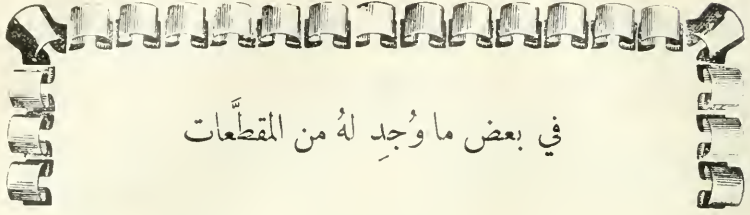 في بعض ما وُجدِ لهُ من المقطَّعات